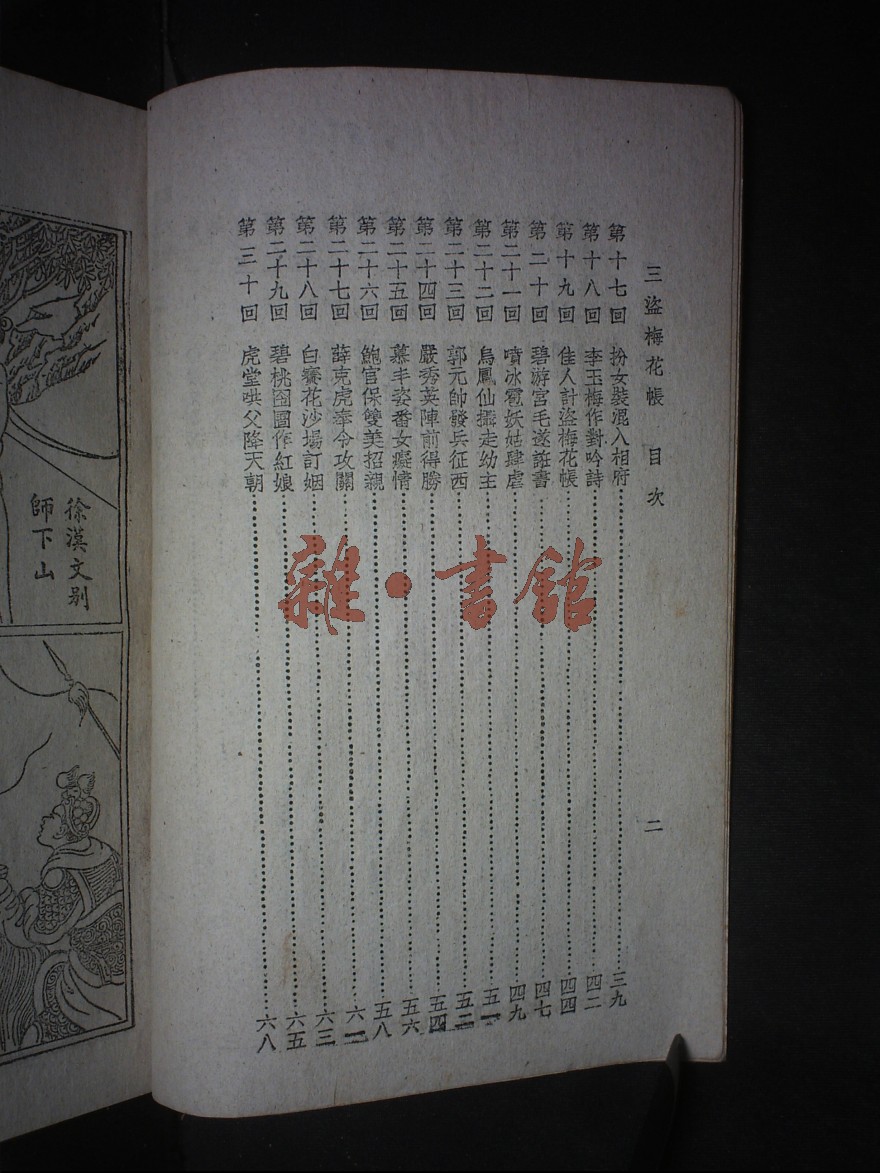 三盜梅花帳　目次
二
第十七回　扮女裝混入相府……三九
第十八回　李玉梅作對吟詩……四二
第十九回　佳人計盜梅花帳……四四
第二十回　碧游宮毛遂誑書……四七
第二十一回　噴冰雹妖姑肆虐……四九
第二十二回　烏鳳仙攝走幼主……五一
第二十三回　郭元帥發兵征西……五二
第二十四回　嚴秀英陣前得勝……五四
第二十五回　慕丰姿番女癡情……五六
第二十六回　鮑官保雙美招親……五八
第二十七回　薛克虎奉令攻關……六一
第二十八回　白賽花沙場訂姻……六三
第二十九回　碧桃囹圄作紅娘……六五
第三十回　虎堂哄父降天朝……六八
徐漢文别
師下山
雜·書館